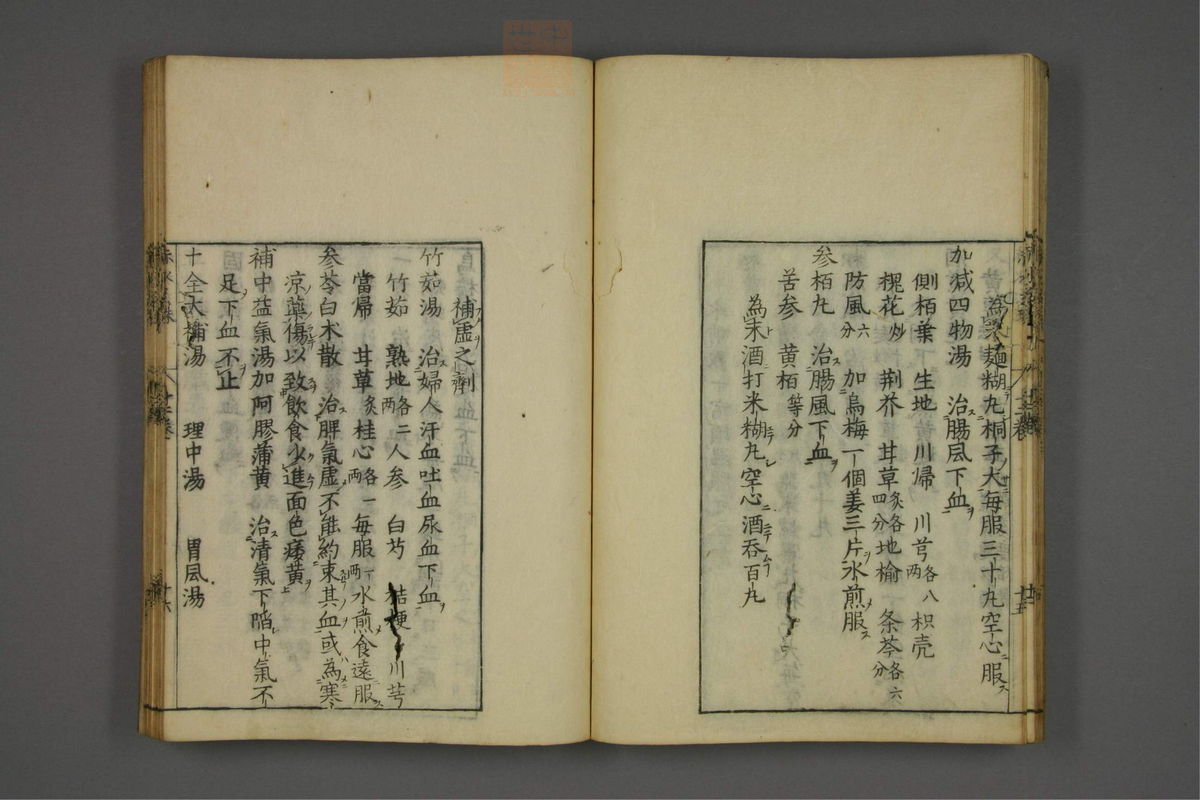 為末麺糊丸桐子大每服三十丸空心服
加減四物湯　治腸風下血
側栢葉　生地　川帰　川芎各八両　枳壳
槐花炒　荆芥　甘草炙各四分　地榆　条芩各六分
防風六分　加烏梅一個姜三片水煎服
参栢丸　治腸風下血
苦参　黄栢等分
為末酒打米糊丸空心酒吞百丸
補虚之劑
竹茹湯　治婦人汗血吐血尿血下血
一竹茹　熟地各二両　人参　白芍　桔梗　川芎
當帰　甘草炙　桂心各一両　每服一両水煎食遠服
参苓白朮散　治脾氣虚不能約束其血或為寒
凉藥傷以致飲食少進面色痿黄
補中益氣湯加阿膠蒲黄　治清氣下陷中氣不
足下血不止
十全大補湯　理中湯　胃風湯